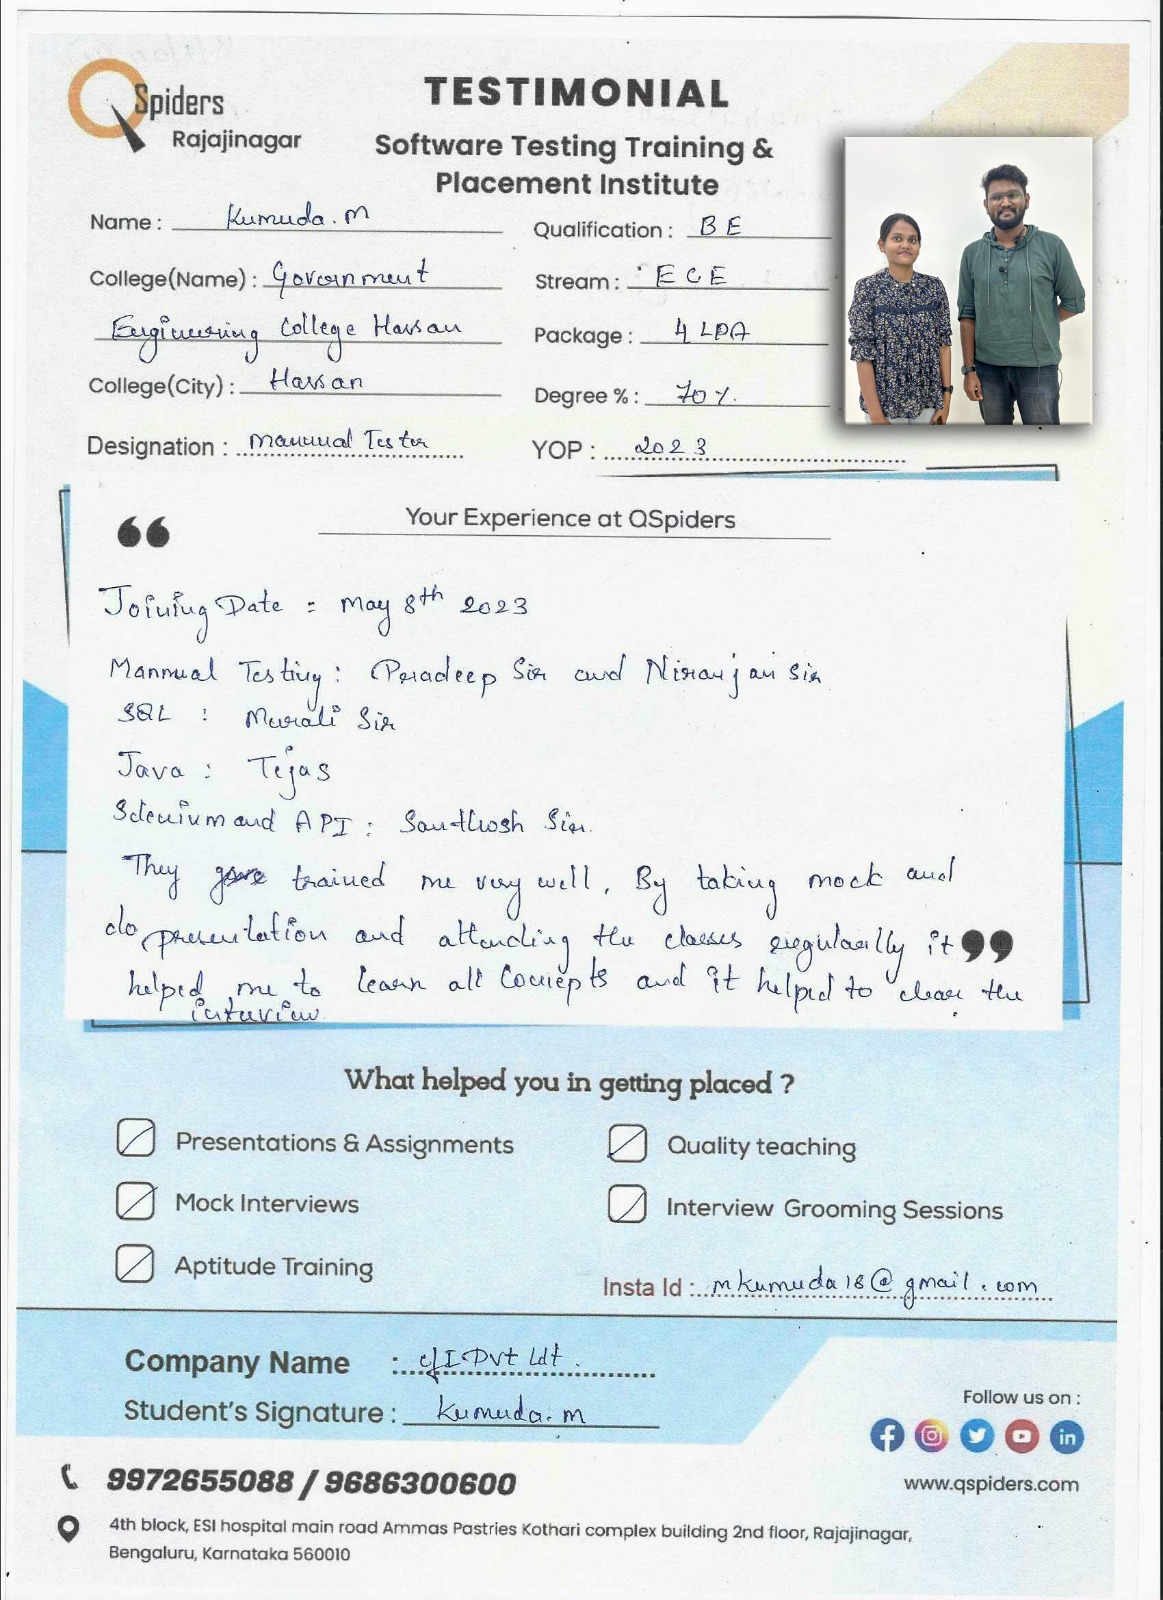 QSpiders
Rajajinagar
TESTIMONIAL
Software Testing Training &
Placement Institute
Name : Kumuda.M
Qualification : BE
College(Name) : Government
Stream : ECE
Engineering College Hassan
Package : 4 LPA
College(City) : Hassan
Degree % : 70%
Designation : Mannual Tester
YOP : 2023
Your Experience at QSpiders
Joining Date : May 8th 2023
Mannual Testing : Pradeep Sir and Niranjan Sir
SQL : Murali Sir
Java : Tejas
Selenium and API : Santhosh Sir.
They trained me very well, By taking mock and
do presentation and attending the classes regularly it
helped me to learn all Concepts and it helped to clear the
interview.
What helped you in getting placed ?
Presentations & Assignments
Quality teaching
Mock Interviews
Interview Grooming Sessions
Aptitude Training
Insta Id : mkumuda18@gmail.com
Company Name : Pvt Ldt.
Student's Signature : Kumuda.M
Follow us on :
9972655088 / 9686300600
www.qspiders.com
4th block, ESI hospital main road Ammas Pastries Kothari complex building 2nd floor, Rajajinagar,
Bengaluru, Karnataka 560010